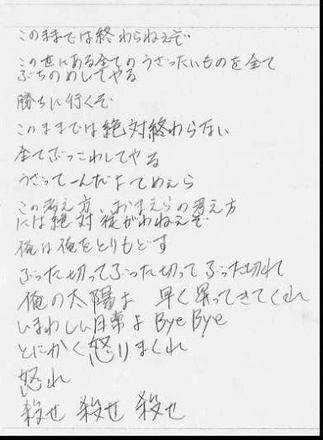 このままでは終わらねえぞ
この世にある全てのうざったいものを全て
ぶちのめしてやる
勝ちに行くぞ
このままでは絶対終わらない
全てぶっこわしてやる
うざってーんだよてめえら
この考え方、おまえらの考え方
には絶対従がわねえぞ
俺は俺をとりもどす
ぶった切ってぶった切ってぶった切れ
俺の太陽よ 早く昇ってきてくれ
いまわしい日常よ Bye Bye
とにかく怒りまくれ
怒れ
殺せ 殺せ 殺せ